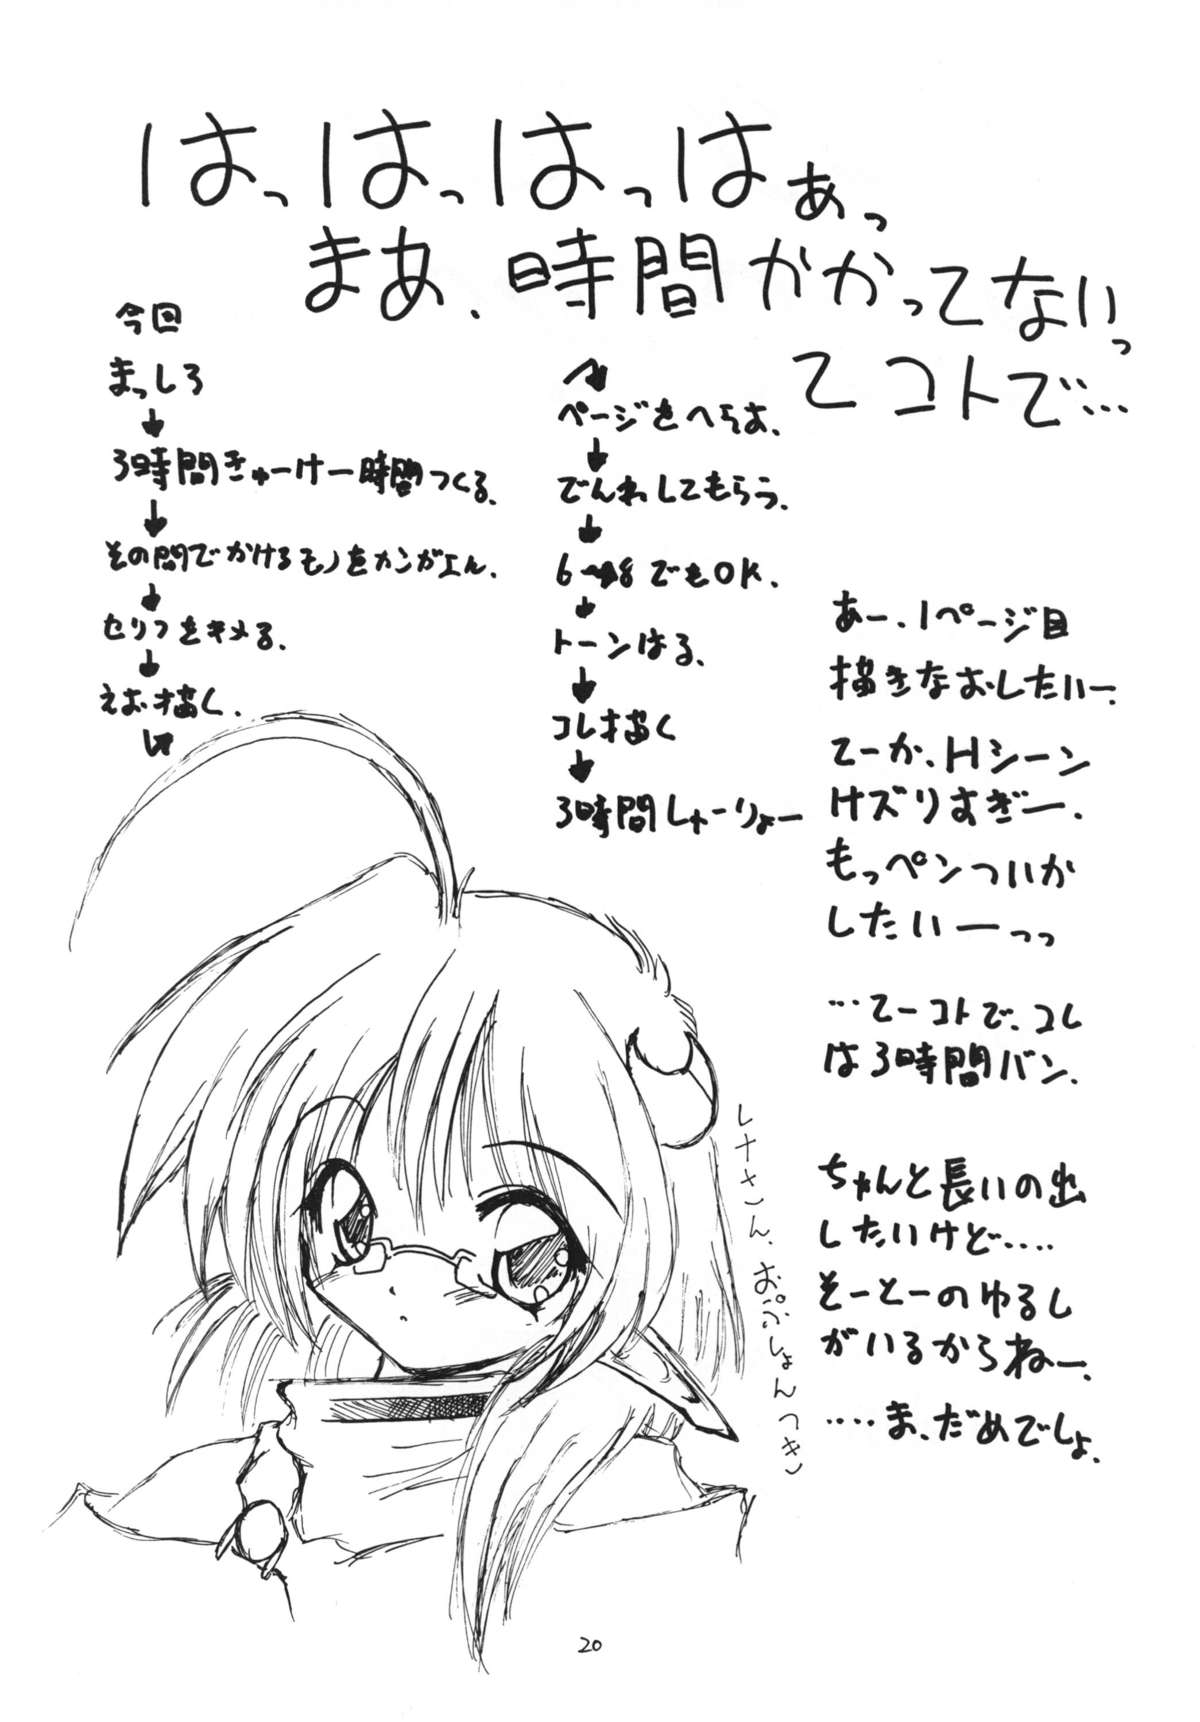 はっはっはっはぁっ
まあ、時間かかってないっ
てコトで…
今回
まっしろ
↓
3時間きゅーけー時間つくる。
↓
その間でかけるモノをカンガエん。
↓
セリフをキメる。
↓
えお描く。
ページをへらす。
↓
でんわしてもらう。
↓
6〜8でもOK.
↓
トーンはる。
↓
コレ描く
↓
3時間しゅーりょー
あー、1ページ目
描きなおしたいー。
てーか、Hシーン
けズりすぎー。
もっペンついか
したいーっっ
…てーコトで、コレ
は3時間バン。
ちゃんと長いの出
したいけど‥‥
そーとーのゆるし
がいるからねー。
‥‥ま、だめでしょ。
レナさん、おぷしょんつき
20